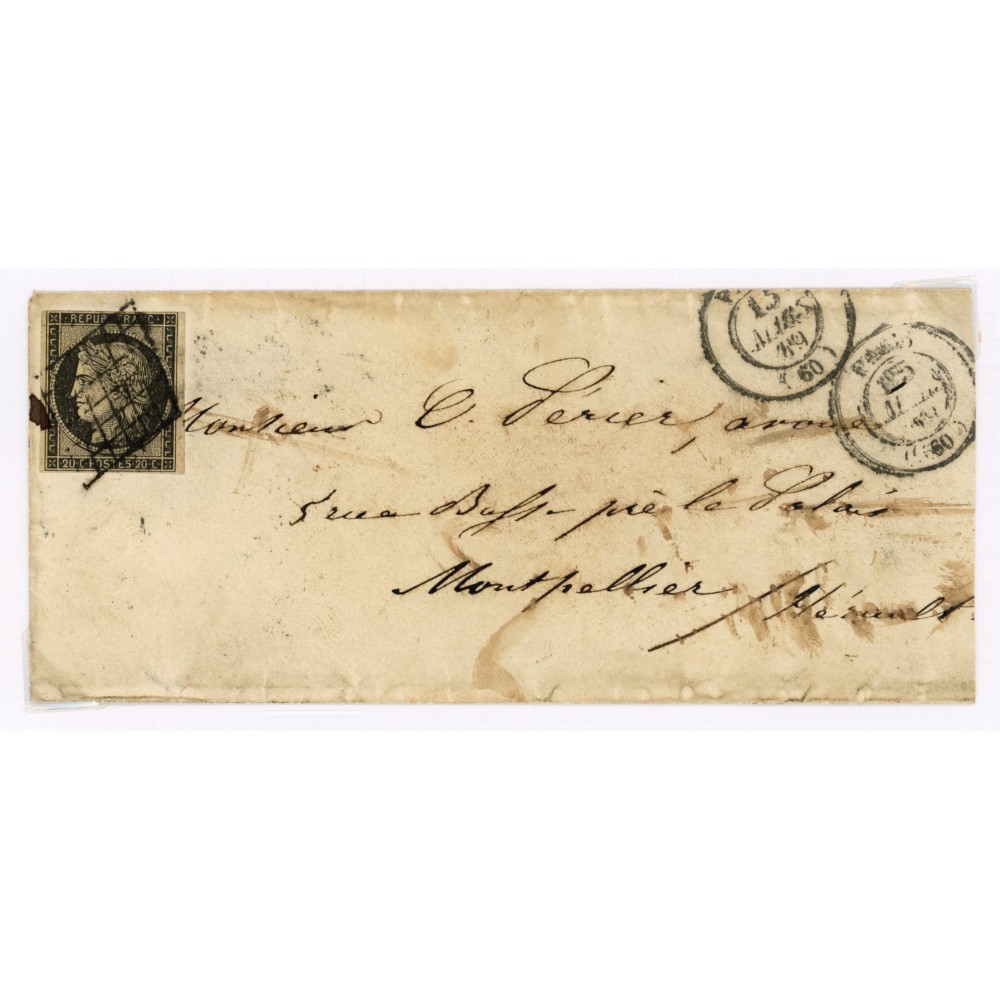 REPUB. FRANC.
20 c. POSTES 20 c.
15
49
(60)
PARIS
49
(60)
Monsieur C. Périer, avoué
5 rue près le Palais
Montpellier / Hérault